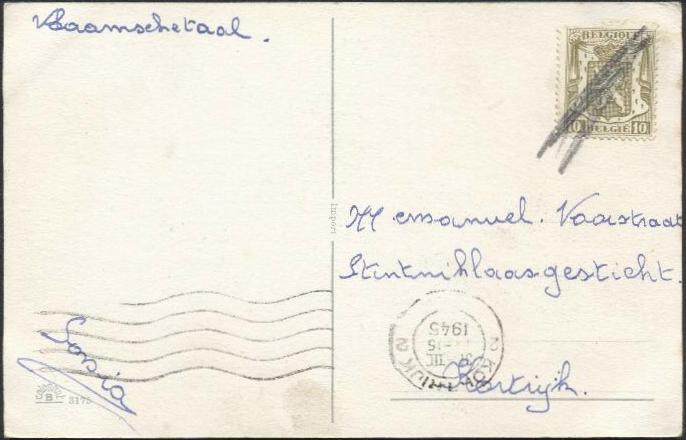 Vlaamschetaal.
BELGIQUE
10 BELGIË 10
Import
M emmanuel. Vaarstraat
Stintniklaasgesticht.
KORTRIJK
2 2
III
1945
Kortrijk.
Sonia
B
3175